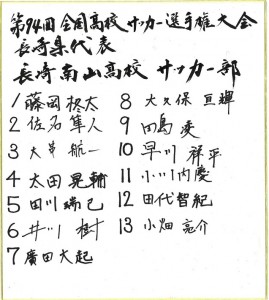 第94回 全国高校サッカー選手権大会
長崎県代表
長崎南山高校 サッカー部
1 藤岡柊太
2 佐名隼人
3 大草航一
4 太田晃輔
5 田川瑞己
6 井川 樹
7 廣田大起
8 大久保亘輝
9 田島凌
10 早川祥平
11 小川内慶
12 田代智紀
13 小畑諒介